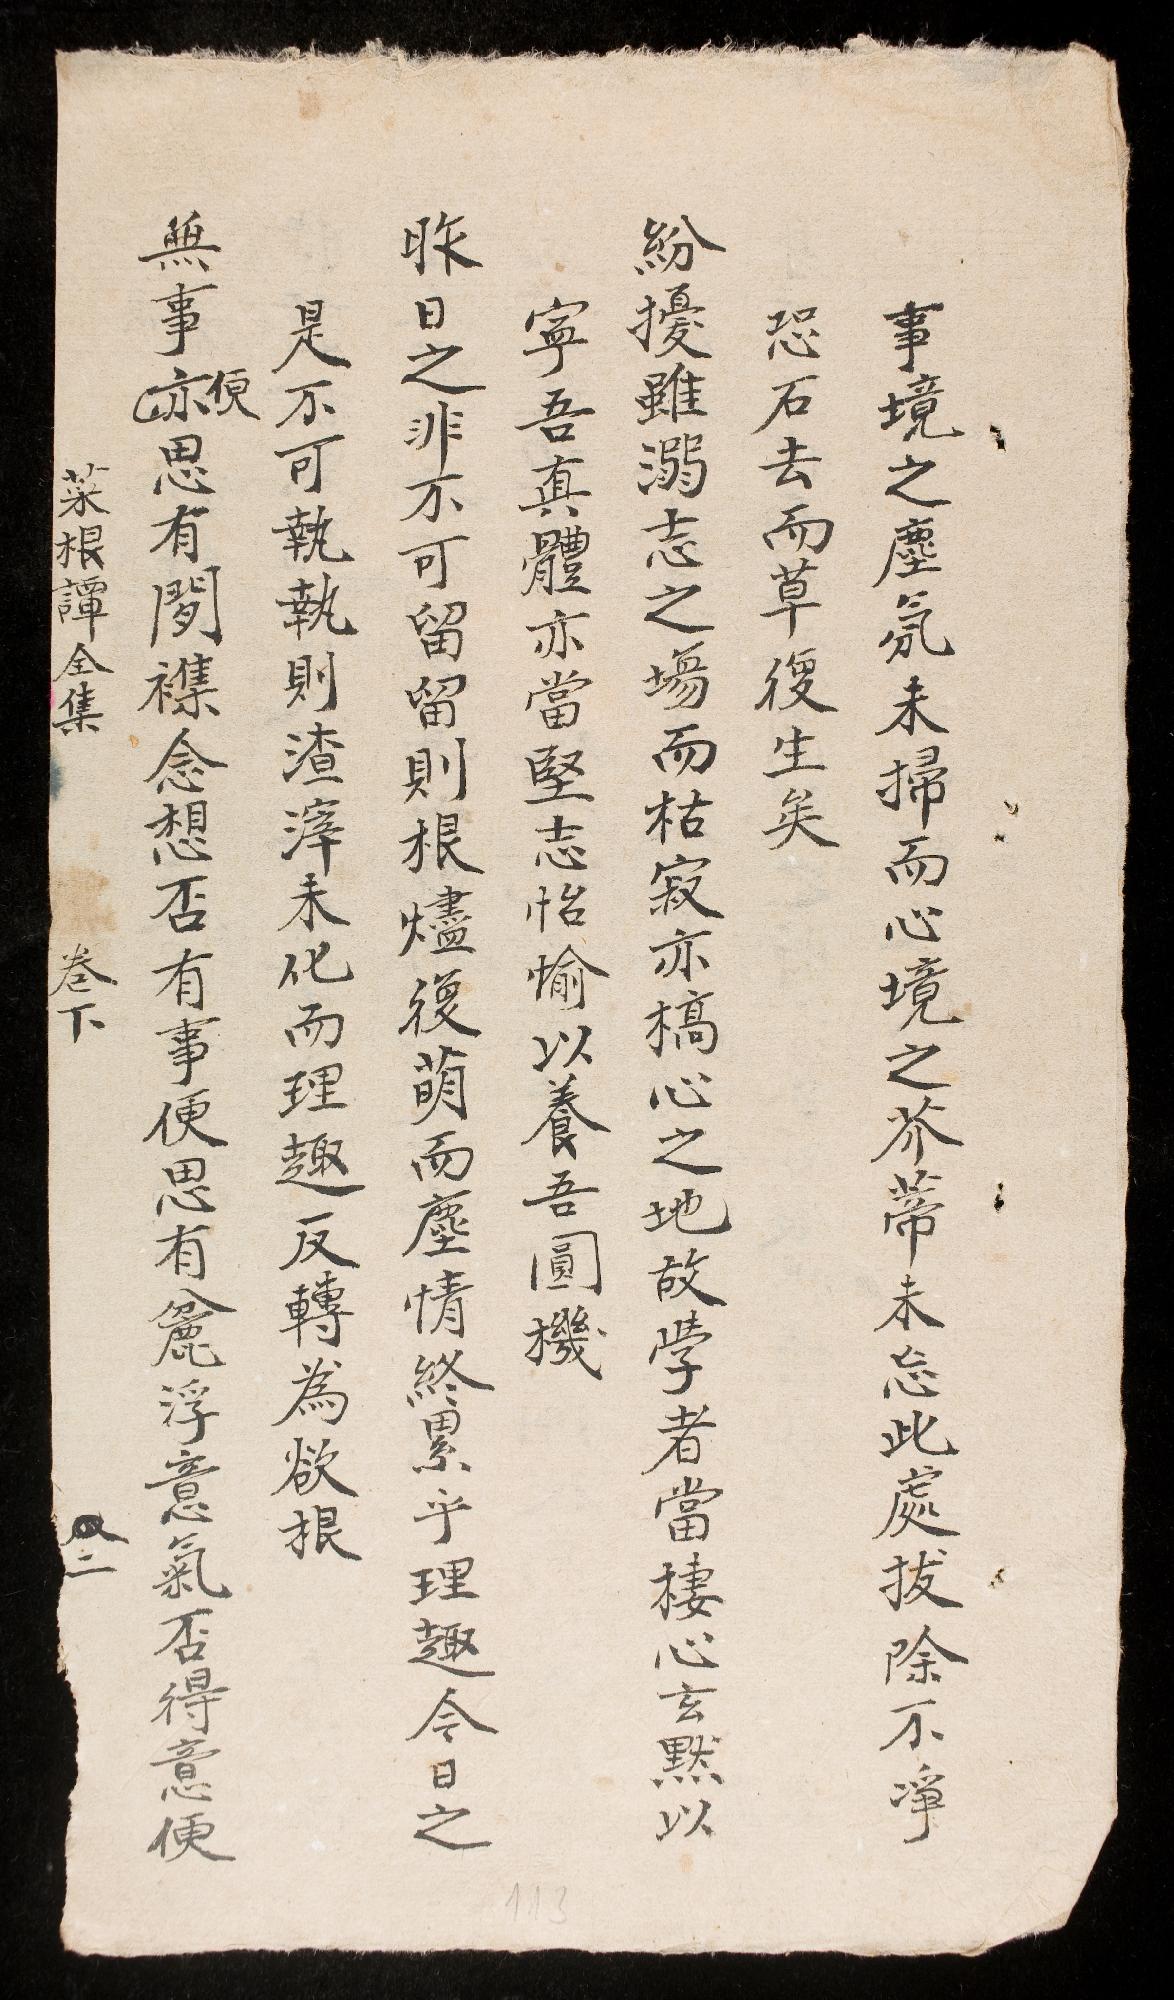 事境之塵氛未掃而心境之芥蒂未忘此處拔除不淨
恐石去而草復生矣
紛擾雖溺志之場而枯寂亦槁心之地故學者當棲心玄默以
寧吾真體亦當堅志怡愉以養吾圓機
昨日之非不可留留則根燼復萌而塵情終累乎理趣今日之
是不可執執則渣滓未化而理趣反轉為欲根
無事亦便思有閒襍念想否有事便思有麄浮意氣否得意便
菜根譚全集
卷下
二
113